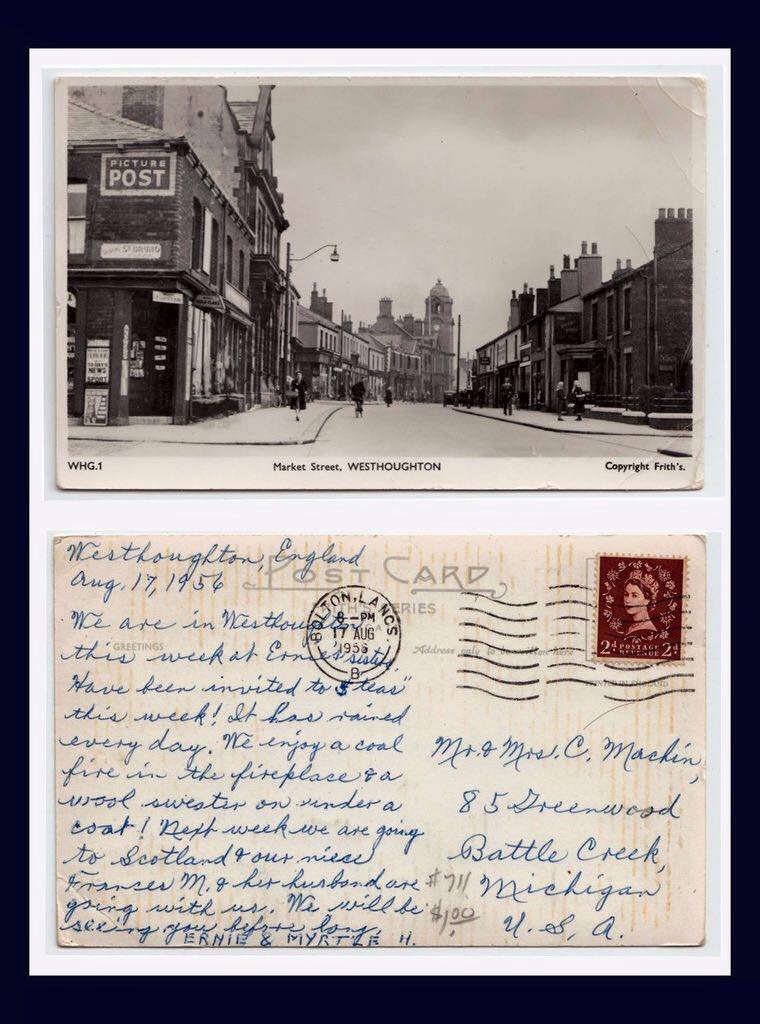 PICTURE
POST
ST BRUNO
NEWS
SPORT
WHG.1
Market Street, WESTHOUGHTON
Copyright Frith's.
Westhoughton, England
Aug. 17, 1956
POST CARD
SERIES
BOLTON, LANCS.
8 - PM
17 AUG
1956
B
GREETINGS
Address only to be written here
2d POSTAGE 2d
REVENUE
We are in Westhoughton
this week at Ernie's sisters
Have been invited to 5 "teas"
this week! It has rained
every day. We enjoy a coal
fire in the fireplace & a
wool sweater on under a
coat! Next week we are going
to Scotland & our niece
Frances M. & her husband are
going with us. We will be
seeing you before long.
ERNIE & MYRTLE H.
Mr. & Mrs. C. Machin,
85 Greenwood
Battle Creek,
Michigan
U. S. A.
#711
$1.00